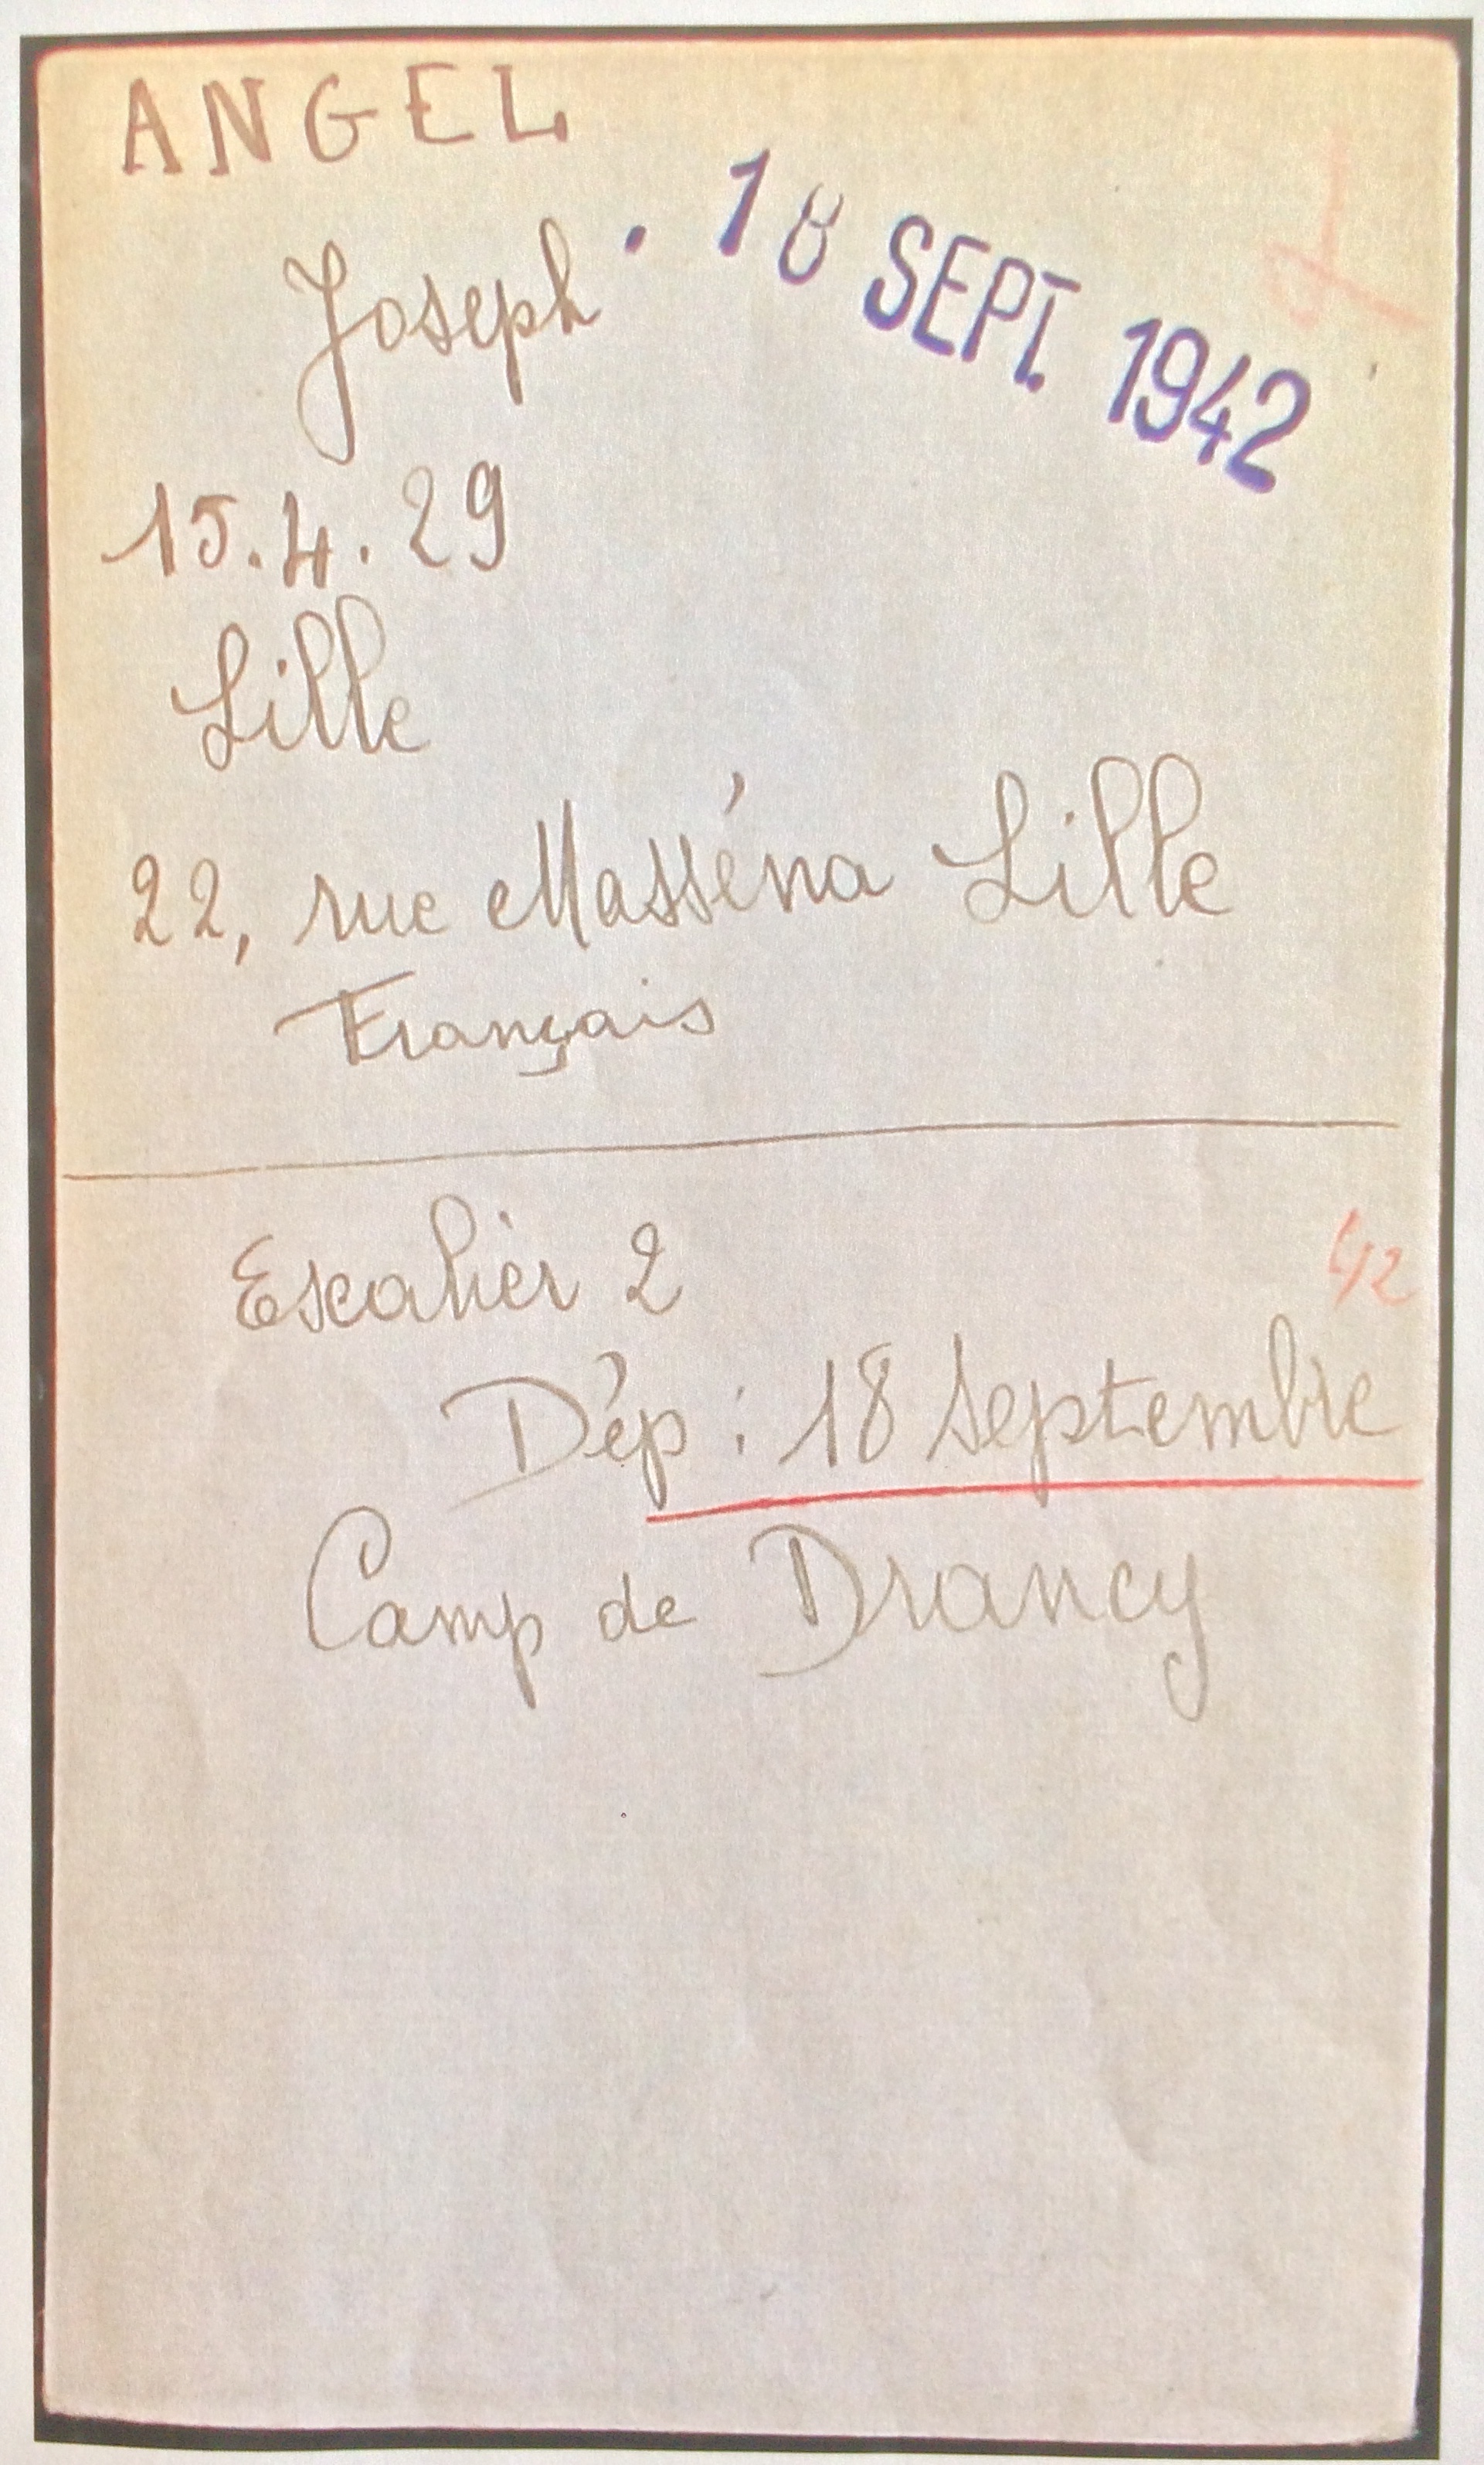 ANGEL
Joseph
18 SEPT. 1942
15.4.29
Lille
22, rue Masséna Lille
Français
Escalier 2
42
Dép : 18 Septembre
Camp de Drancy